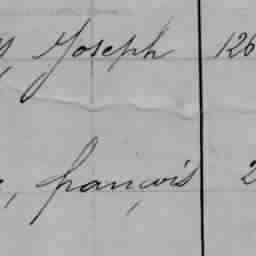 Joseph 126
, françois 2